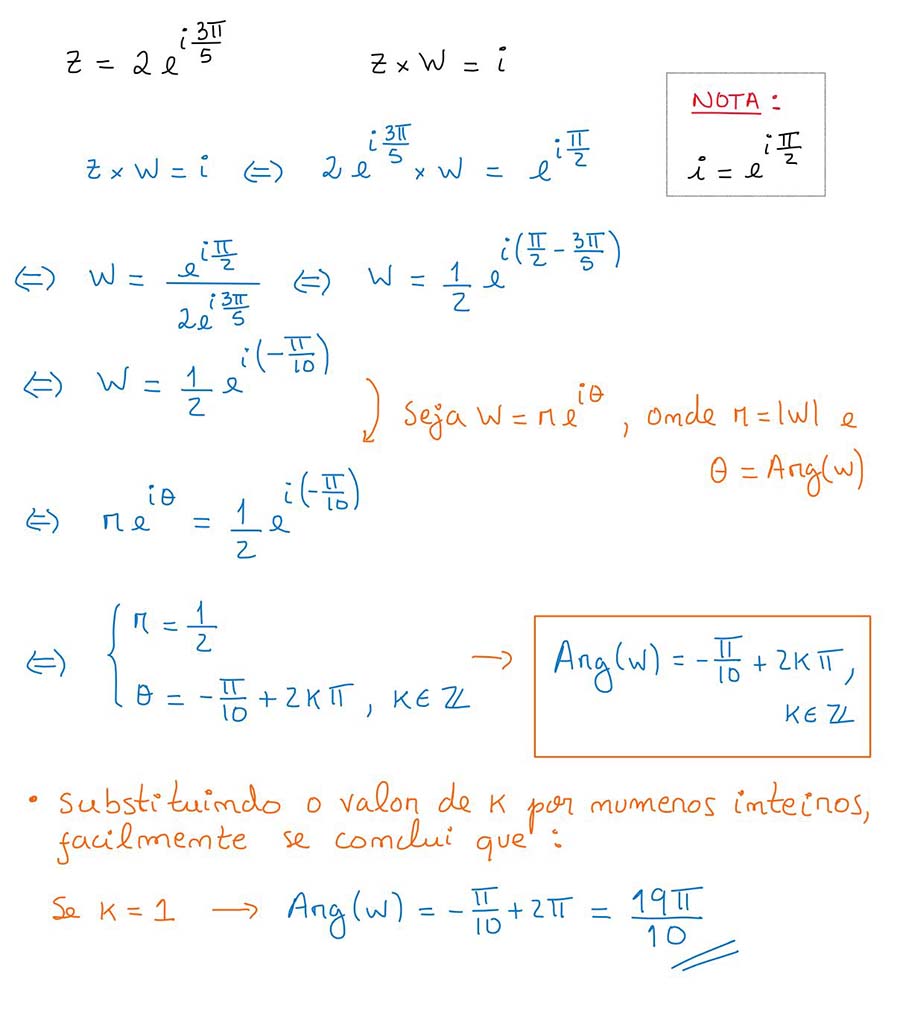 z = 2e^{i\frac{3π}{5}}    z × w = i
NOTA:
i = e^{i\frac{π}{2}}
z × w = i ⇔ 2e^{i\frac{3π}{5}} × w = e^{i\frac{π}{2}}
⇔ w = \frac{e^{i\frac{π}{2}}}{2e^{i\frac{3π}{5}}} ⇔ w = \frac{1}{2} e^{i(\frac{π}{2} - \frac{3π}{5})}
⇔ w = \frac{1}{2} e^{i(-\frac{π}{10})}
Seja w = r e^{iθ}, onde r = |w| e
θ = Arg(w)
⇔ r e^{iθ} = \frac{1}{2} e^{i(-\frac{π}{10})}
⇔ { r = \frac{1}{2}
θ = -\frac{π}{10} + 2kπ, k ∈ ℤ
→ Arg(w) = -\frac{π}{10} + 2kπ,
k ∈ ℤ
• Substituindo o valor de k por numeros inteiros,
facilmente se conclui que:
Se k = 1 → Arg(w) = -\frac{π}{10} + 2π = \frac{19π}{10}